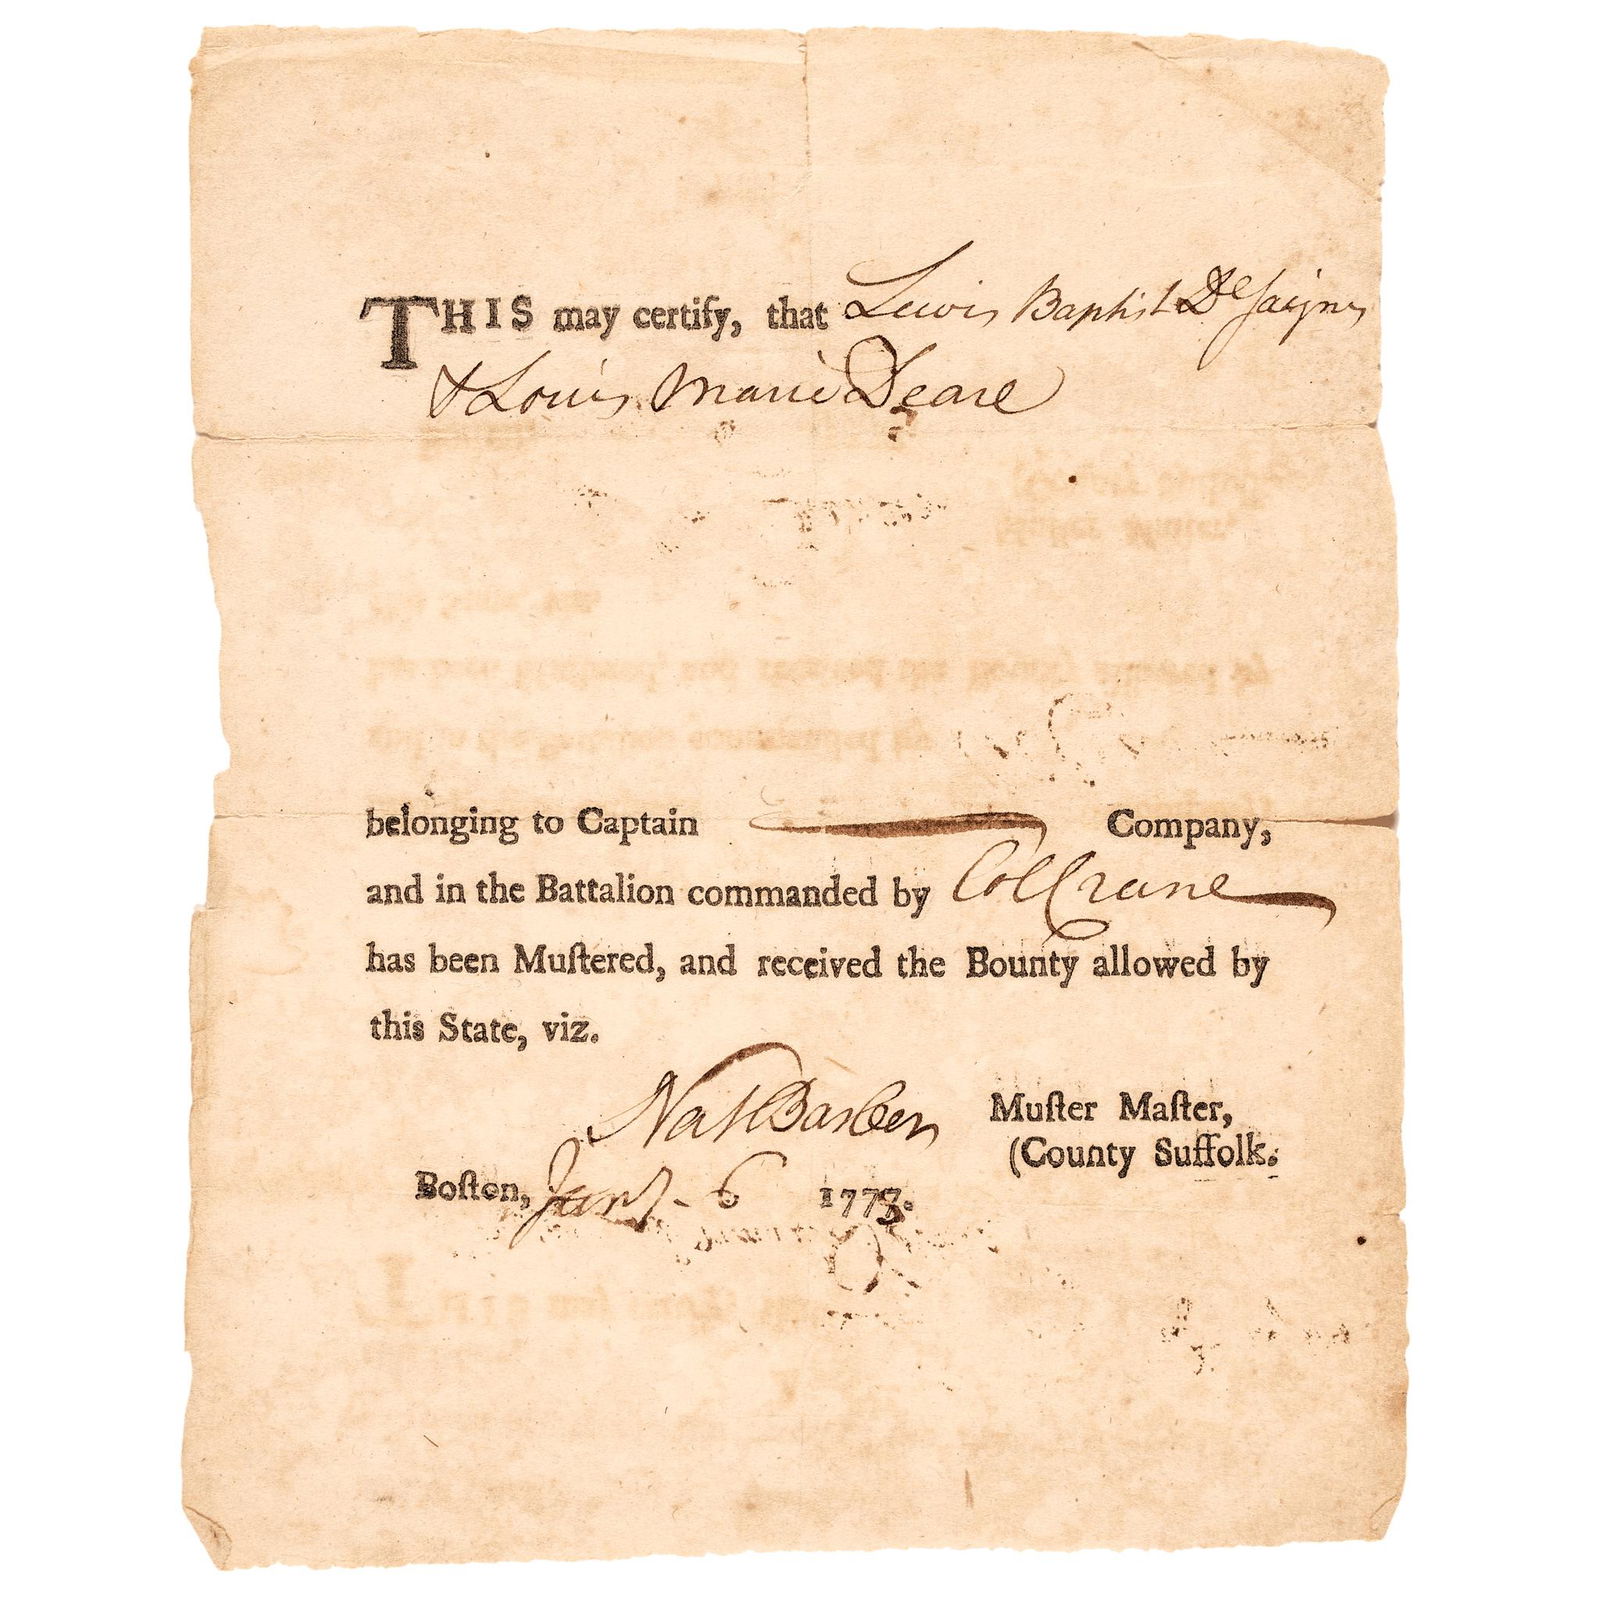 THIS may certify, that Lewis Baptist DeSaignes
& Louis Marie Deare
belonging to Captain Company,
and in the Battalion commanded by Col Crane
has been Muſtered, and received the Bounty allowed by
this State, viz.
Nat Barber Muſter Maſter,
(County Suffolk.
Boſton, Jany - 6 1778.